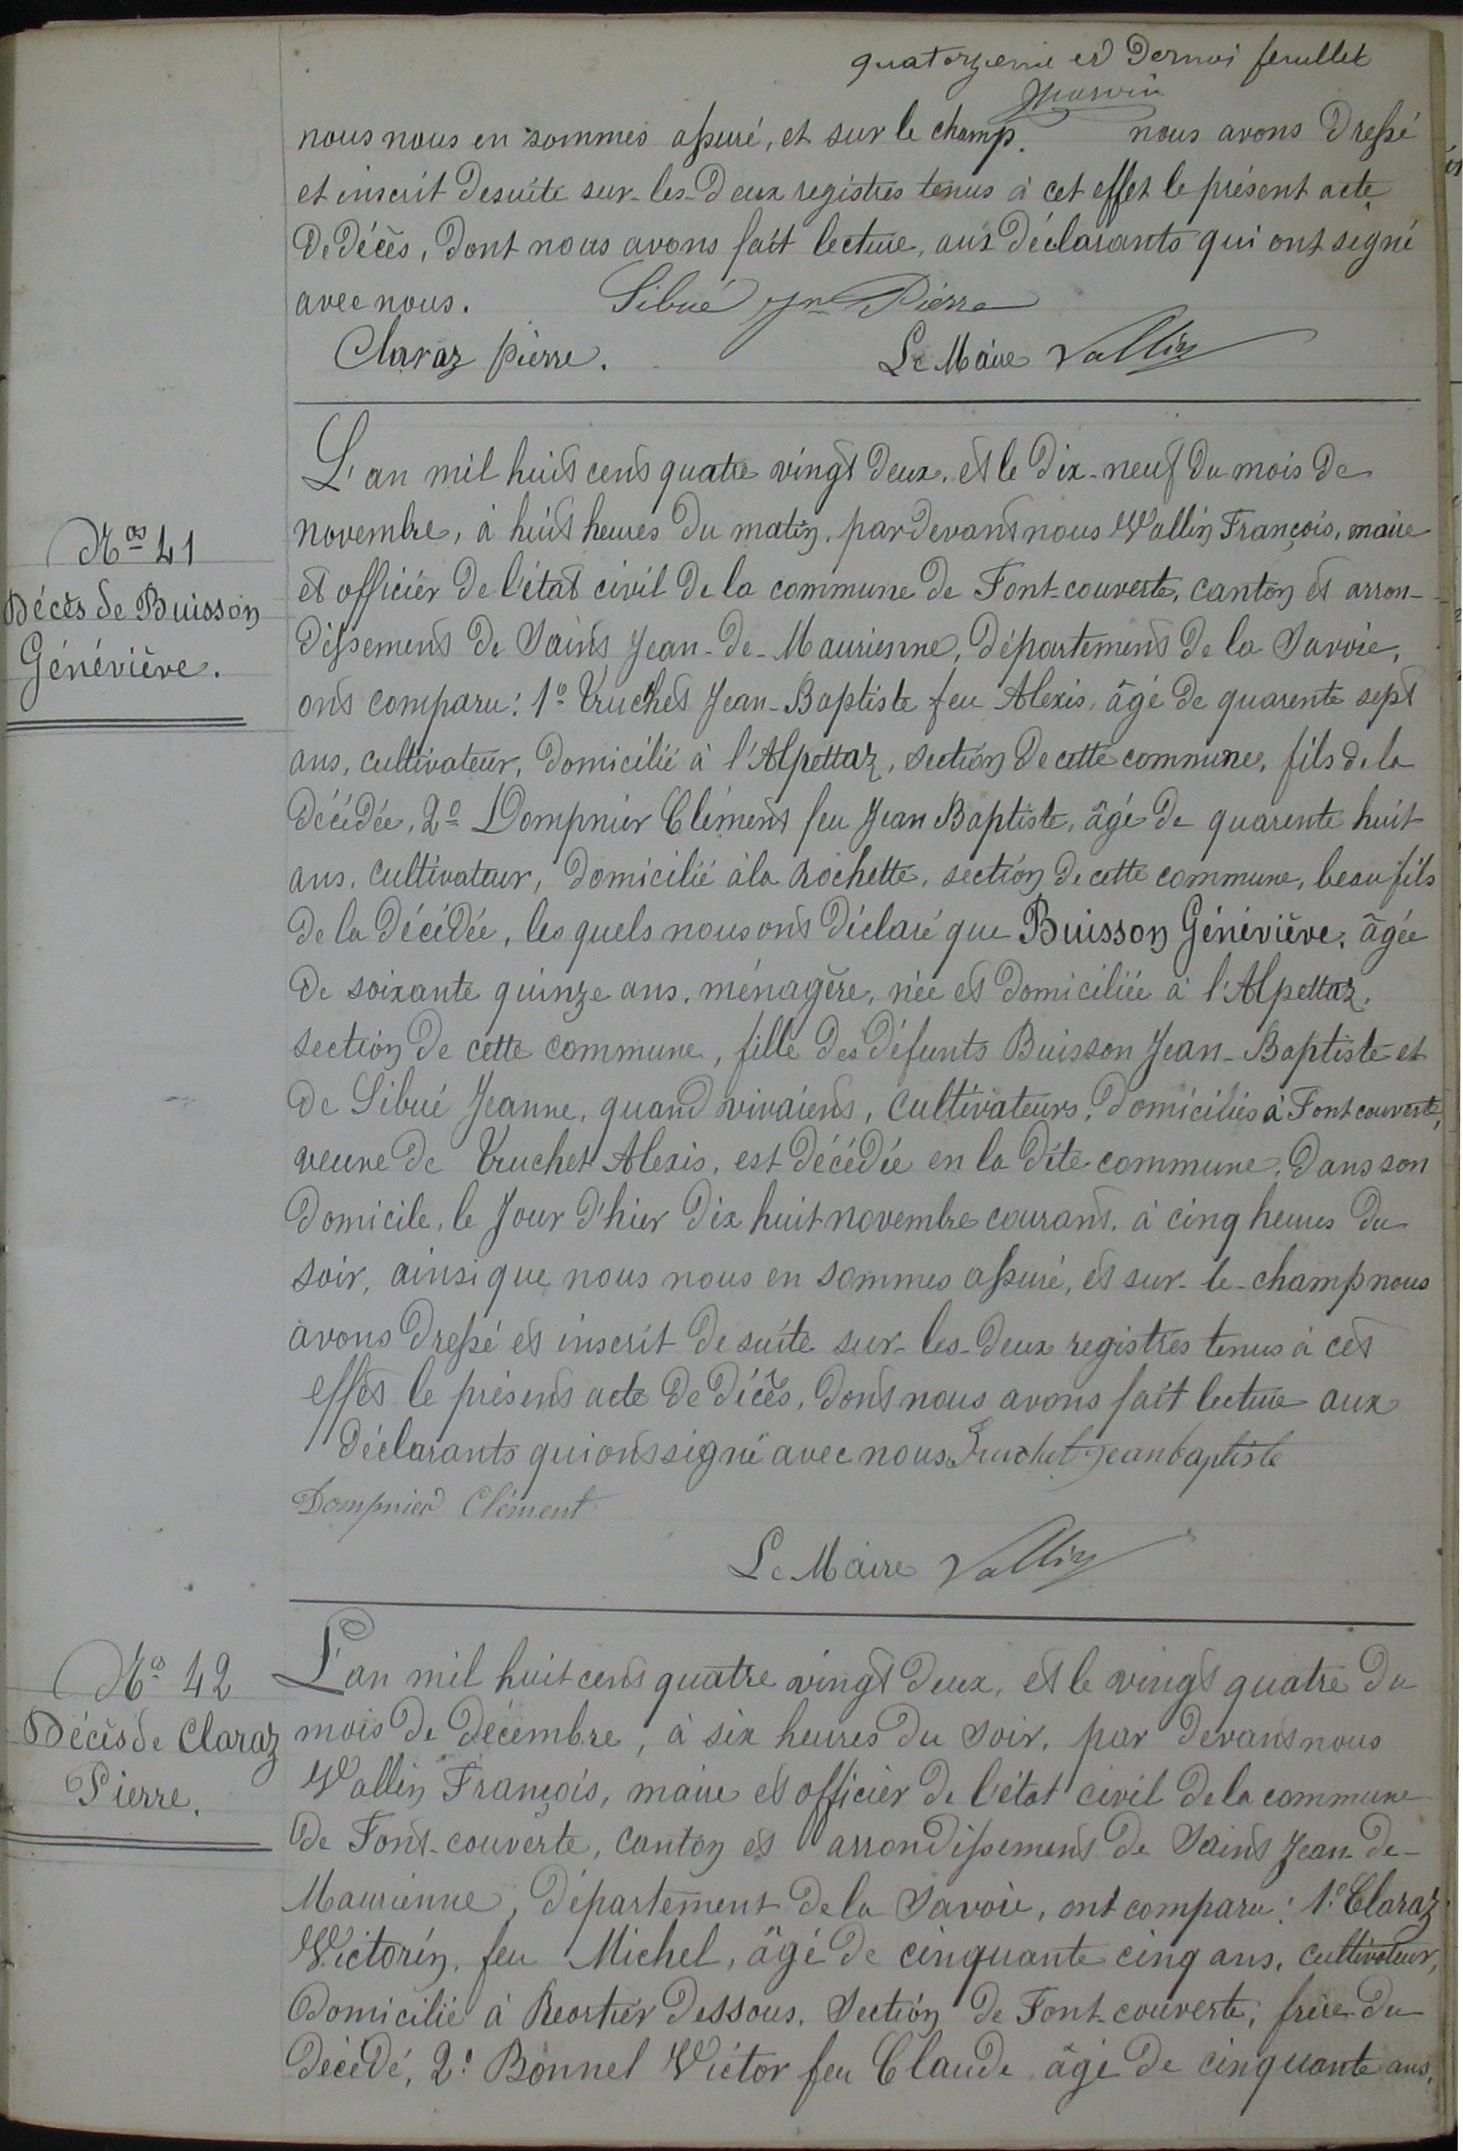 quatorzième et dernier feuillet
nous nous en sommes assuré, et sur le champ. nous avons dressé
et inscrit desuite sur-les-deux registres tenus à cet effet le présent acte
de décès, dont nous avons fait lecture, aux déclarants qui ont signé
avec nous. Sibué Jn Pierre
Claraz pierre. Le Maire Vallin
L'an mil huit cent quatre vingt deux, et le dix-neuf du mois de
novembre, à huit heures du matin, par devant nous Vallin François, maire
Nos 41
et officier de l'état civil de la commune de Font-couverte, canton et arron-
Décès de Buisson
dissement de Saint Jean-de-Maurienne, département de la Savoie,
Généviève.
ont comparu: 1º Truchet Jean-Baptiste feu Alexis, âgé de quarente sept
ans, cultivateur, domicilié à l'Alpettaz, section de cette commune, fils de la
décédée, 2º Dompnier Clément feu Jean Baptiste, âgé de quarente huit
ans, cultivateur, domicilié à la Rochette, section de cette commune, beau fils
de la décédée, les quels nous ont déclaré que Buisson Généviève, âgée
de soixante quinze ans, ménagère, née et domiciliée à l'Alpettaz,
section de cette commune, fille des défunts Buisson Jean-Baptiste et
de Sibué Jeanne, quand vivaient, cultivateurs, domiciliés à Font couverte,
veuve de Truchet Alexis, est décédée en la dite commune, dans son
domicile, le jour d'hier dix huit novembre courant, à cinq heures du
soir, ainsi que nous nous en sommes assuré, et sur-le-champ nous
avons dressé et inscrit de suite sur-les-deux registres tenus à cet
effet le présent acte de décès, dont nous avons fait lecture aux
déclarants qui ont signé avec nous. Truchet jean baptiste
Dompnier Clément
Le Maire Vallin
Nos 42
L'an mil huit cent quatre vingt deux, et le vingt quatre du
Décès de Claraz
mois de décembre, à six heures du soir, par devant nous
Pierre.
Vallin François, maire et officier de l'état civil de la commune
de Font-couverte, canton et arrondissement de Saint Jean-de-
Maurienne, département de la Savoie, ont comparu: 1º Claraz
Victorin, feu Michel, âgé de cinquante cinq ans, cultivateur,
domicilié à Reortier dessous, Section de Font-couverte, frère du
décédé, 2º Bonnel Victor feu Claude âgé de cinquante ans,